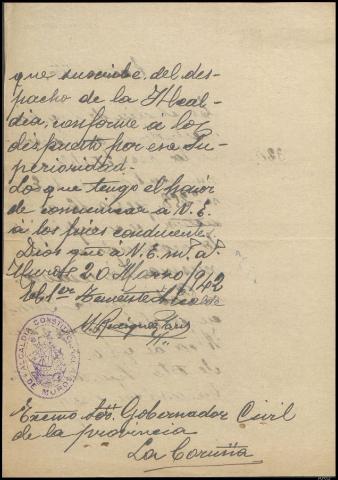 que suscribe, del des-
pacho de la Alcal-
dia, conforme á lo
dispuesto por esa Su-
perioridad.
Lo que tengo el honor
de comunicar á V. E.
á los fines conducentes.
Dios gue á V. E. m. a.
Muros 20 Marzo 1942
El 1er Teniente Alcalde
ALCALDIA CONSTITUCIONAL
DE MUROS
Excmo Sor. Gobernador Civil
de la provincia
La Coruña